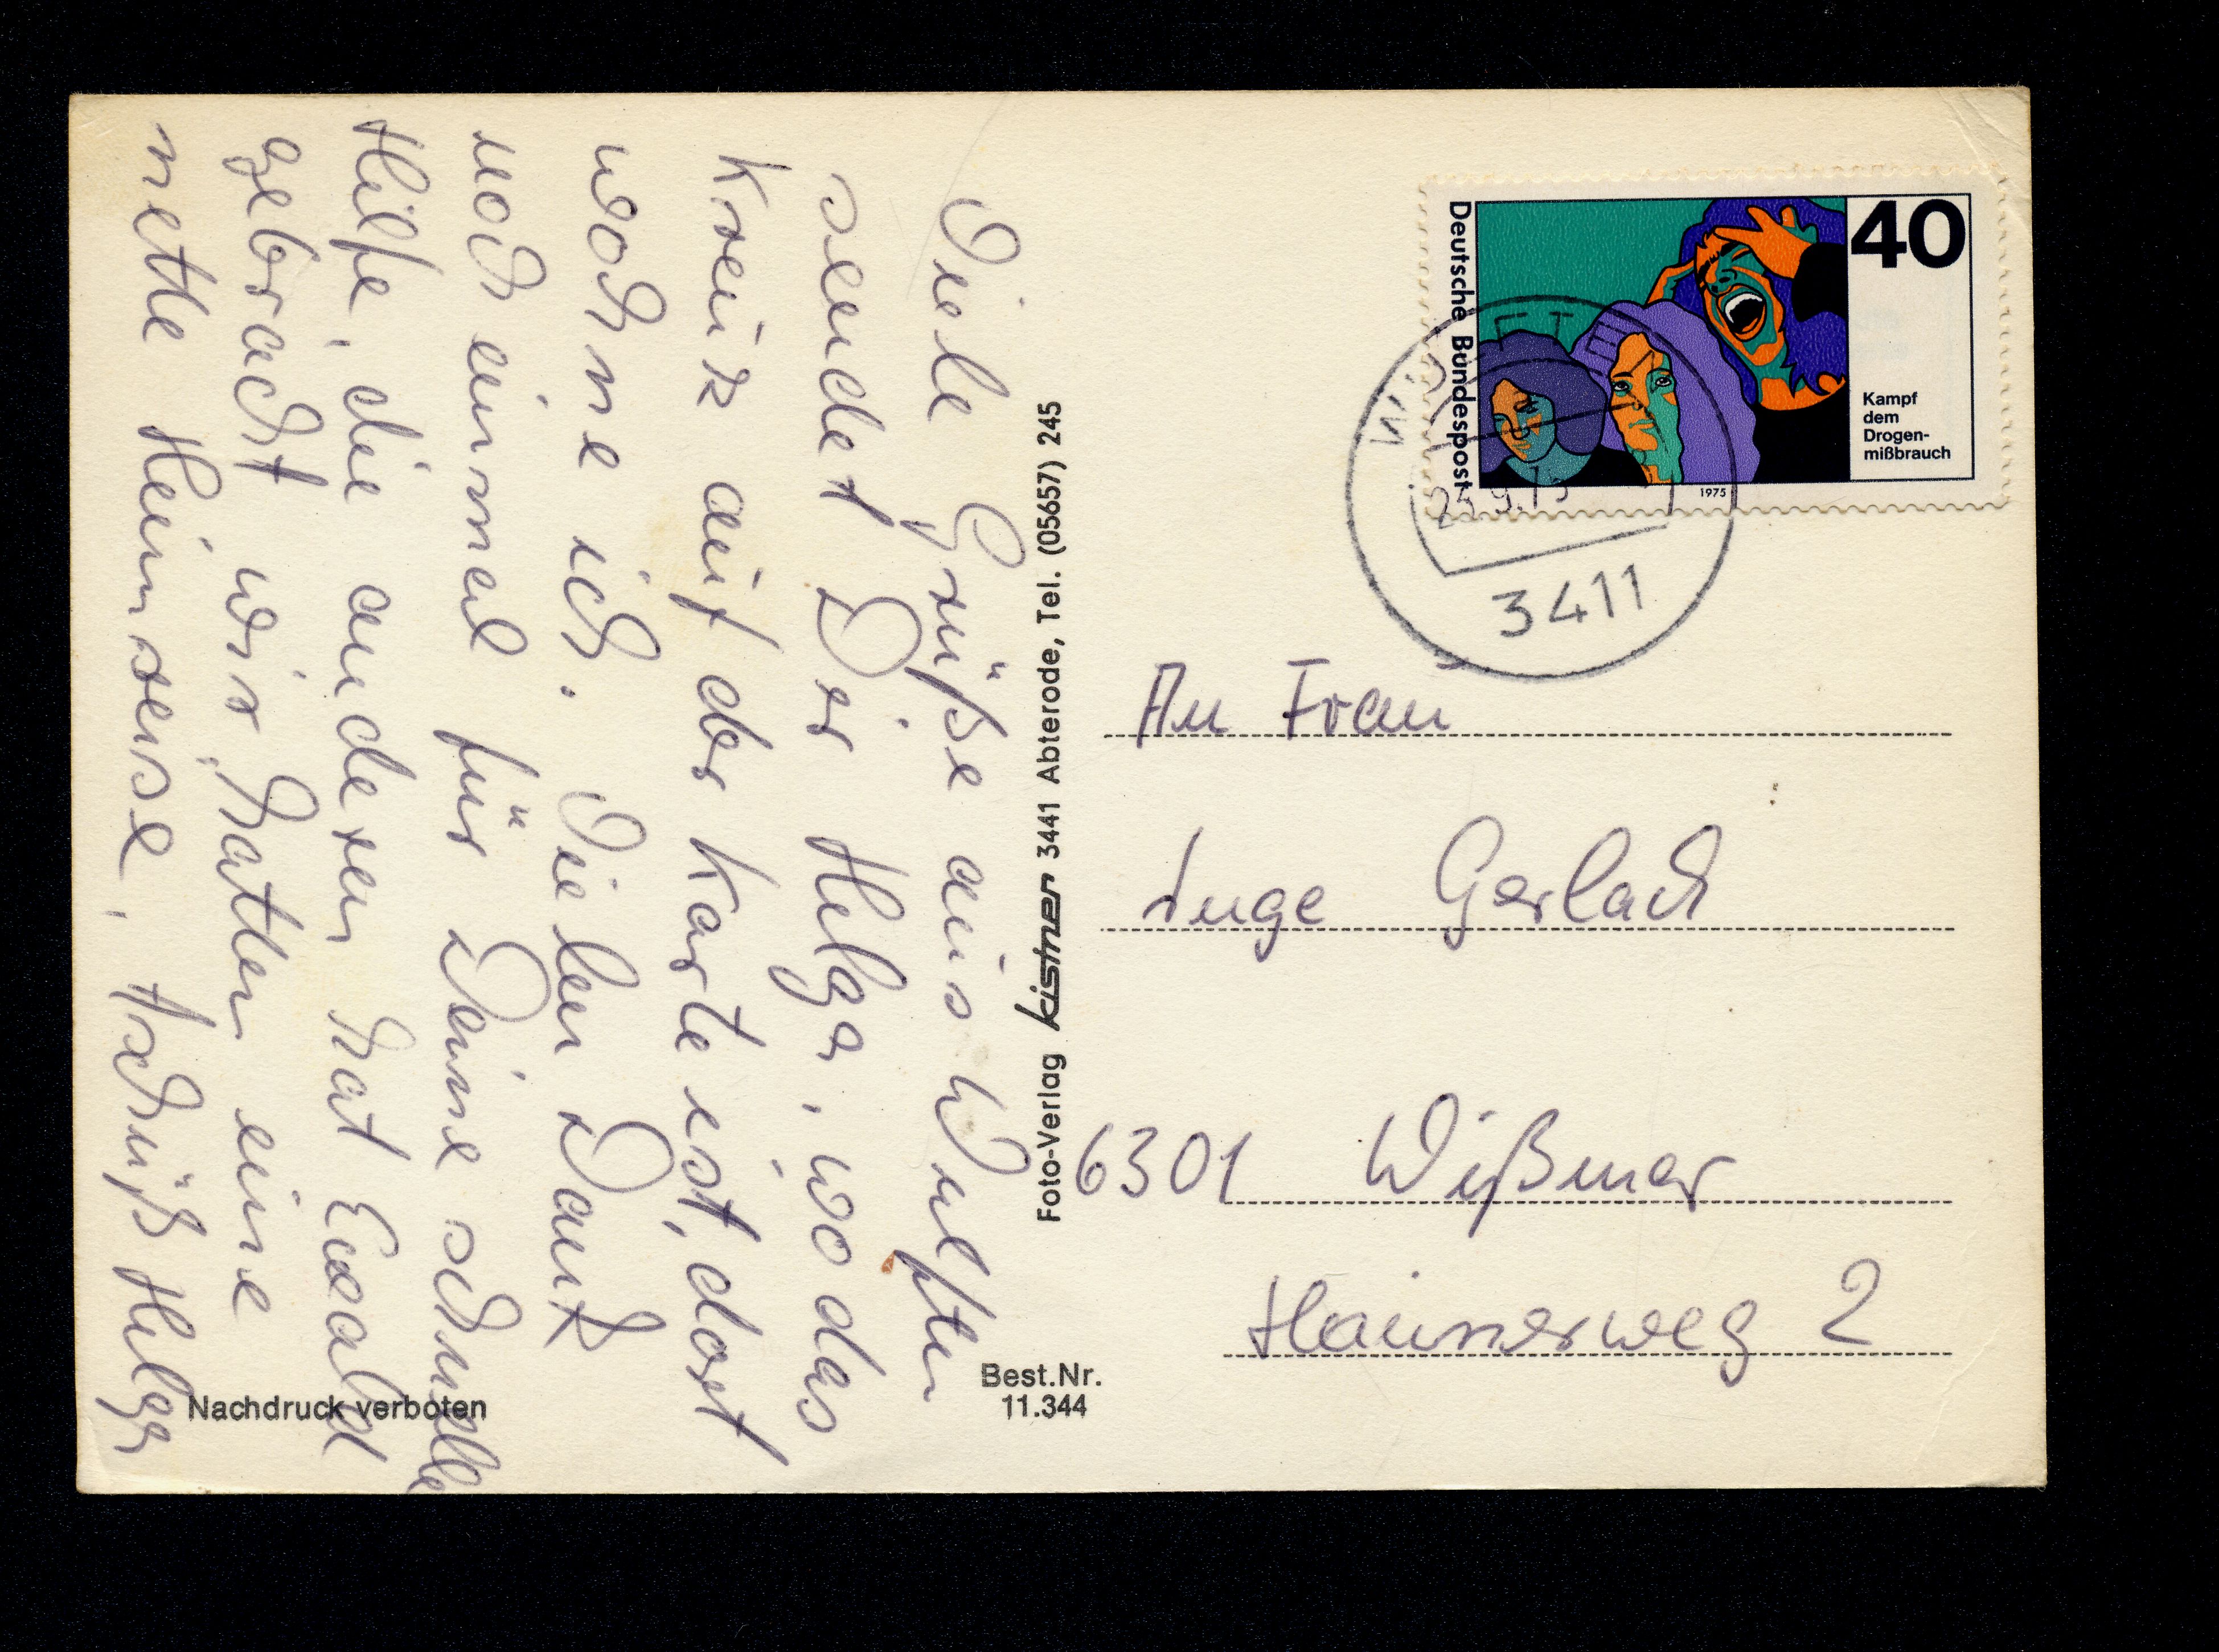 Viele Grüße aus Wulften
sendet Dir Helga, wo das
Kreuz auf der Karte ist, dort
wohne ich. Vielen Dank
noch einmal für Deine schnelle
Hilfe, die anderen hat Ewald
gebracht wir hatten eine
nette Heimreise. Tschüß Helga
Nachdruck verboten
Foto-Verlag kistner 3441 Abterode, Tel. (05657) 245
Best.Nr.
11.344
Deutsche Bundespost
40
Kampf
dem
Drogen-
mißbrauch
1975
3411
An Frau
Inge Gerlach
6301 Wißmar
Hainerweg 2